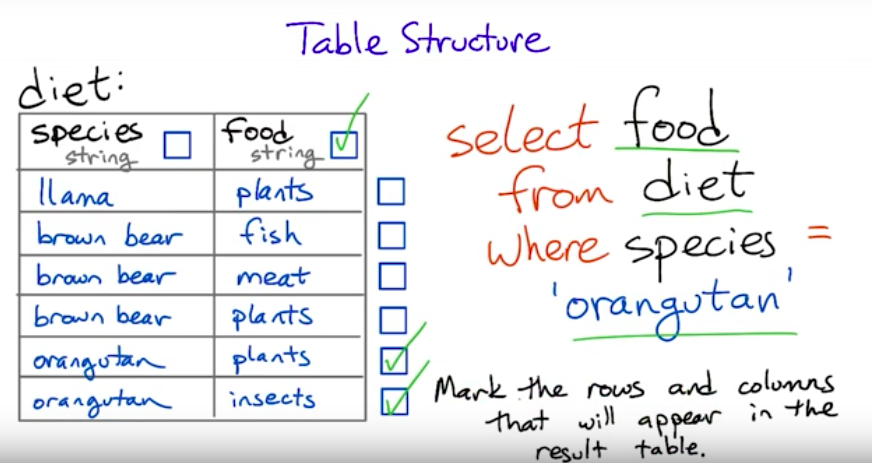 Table Structure
diet:
species food
string string
llama plants
brown bear fish
brown bear meat
brown bear plants
orangutan plants
orangutan insects
select food
from diet
where species =
'orangutan'
Mark the rows and columns
that will appear in the
result table.